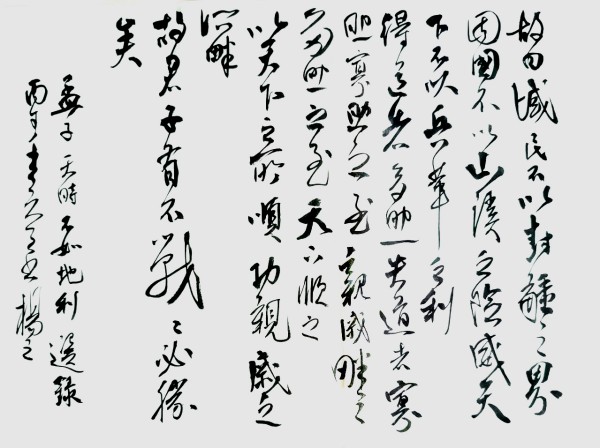 故曰域民不以封疆之界
固國不以山溪之險威天
下不以兵革之利
得道者多助失道者寡
助寡助之至親戚畔之
多助之至天下順之
以天下之所順攻親戚之
所畔
故君子有不戰〻必勝
矣
孟子天時不如地利選錄